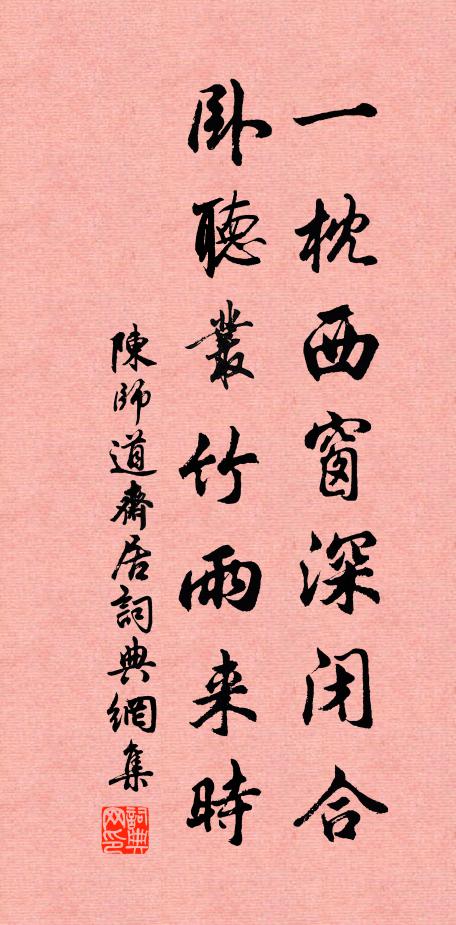 一枕西窗深闭合
卧聽叢竹雨来時
陳師道齋居詞典網集
詞典
网印